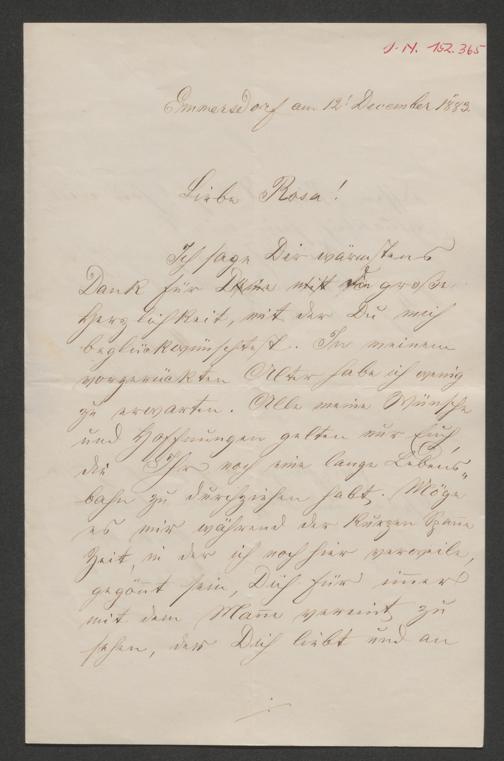 J. N. 152.365
Emmersdorf am 12t December 1883.
Liebe Rosa!
Ich sage Dir wärmstens
Dank für die große
Herzlichkeit, mit der Du mich
beglückwünschtest. In meinem
vorgerückten Alter habe ich wenig
zu erwarten. Alle meine Wünsche
und Hoffnungen gelten nur Euch,
die Ihr noch eine lange Lebens„
bahn zu durchziehen habt. Möge
es mir während der kurzen Spanne
Zeit, in der ich noch hier verweile,
gegönnt sein, Dich für immer
mit dem Manne vereint zu
sehen, der Dich liebt und an